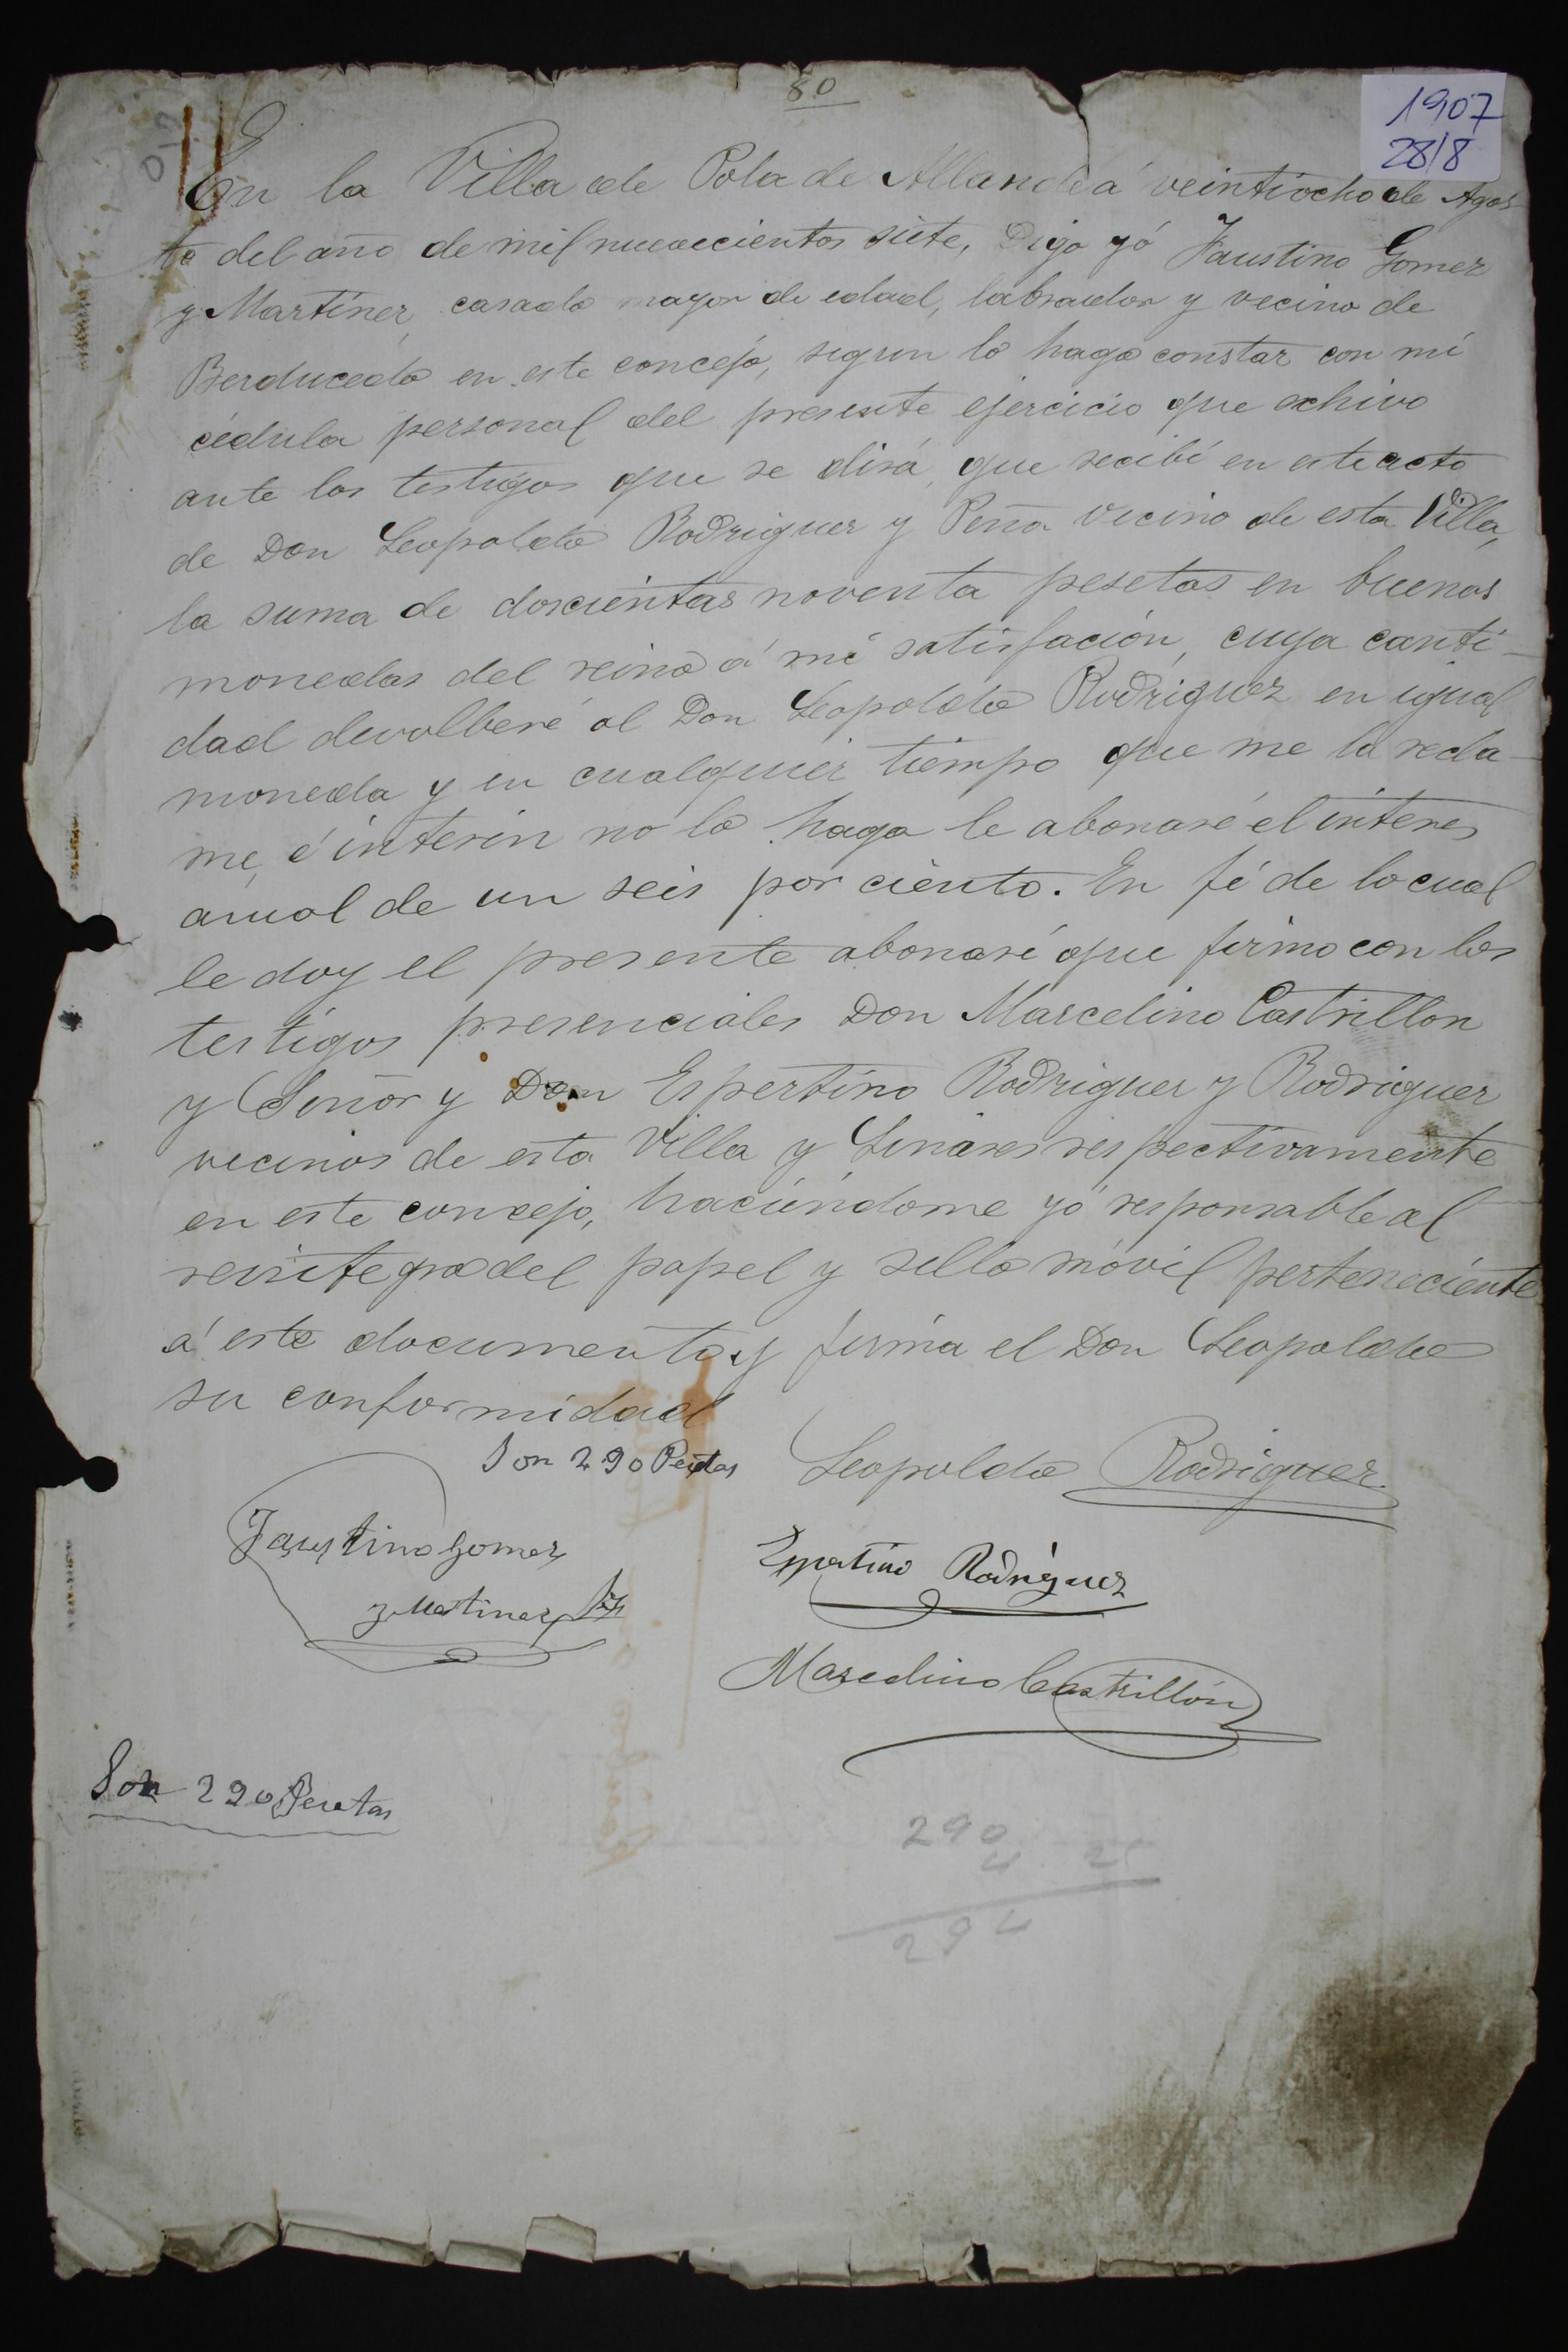 80
1907
28/8
En la Villa de Pola de Allande á veintiocho de Agos-
to del año de mil nuevecientos siete, Digo yó Faustino Gomez
y Martínez, casado mayor de edad, labrador y vecino de
Berducedo en este concejo, segun lo hago constar con mi
cédula personal del presente ejercicio que exhivo
ante los testigos que se dirá, que recibí en este acto
de Don Leopoldo Rodriguez y Peña vecino de esta Villa,
la suma de doscientas noventa pesetas en buenas
monedas del reino á mi satisfación, cuya canti-
dad devolberé al Don Leopoldo Rodriguez en igual
moneda y en cualquier tiempo que me la recla-
me, é interin no lo haga le abonaré el interes
anual de un seis por ciento. En fé de lo cual
le doy el presente abonaré que firmo con los
testigos presenciales Don Marcelino Castrillon
y Señor y Don Espertino Rodriguez y Rodriguez
vecinos de esta Villa y Linares respectivamente
en este concejo, haciéndome yó responsable al
reintegro del papel y sello móvil perteneciente
á este documento y firma el Don Leopoldo
su conformidad
Son 290 Pesetas
Leopoldo Rodriguez
Faustino Gomez
y Martinez
Espertino Rodriguez
Marcelino Castrillón
Son 290 Pesetas
290
4 25
294